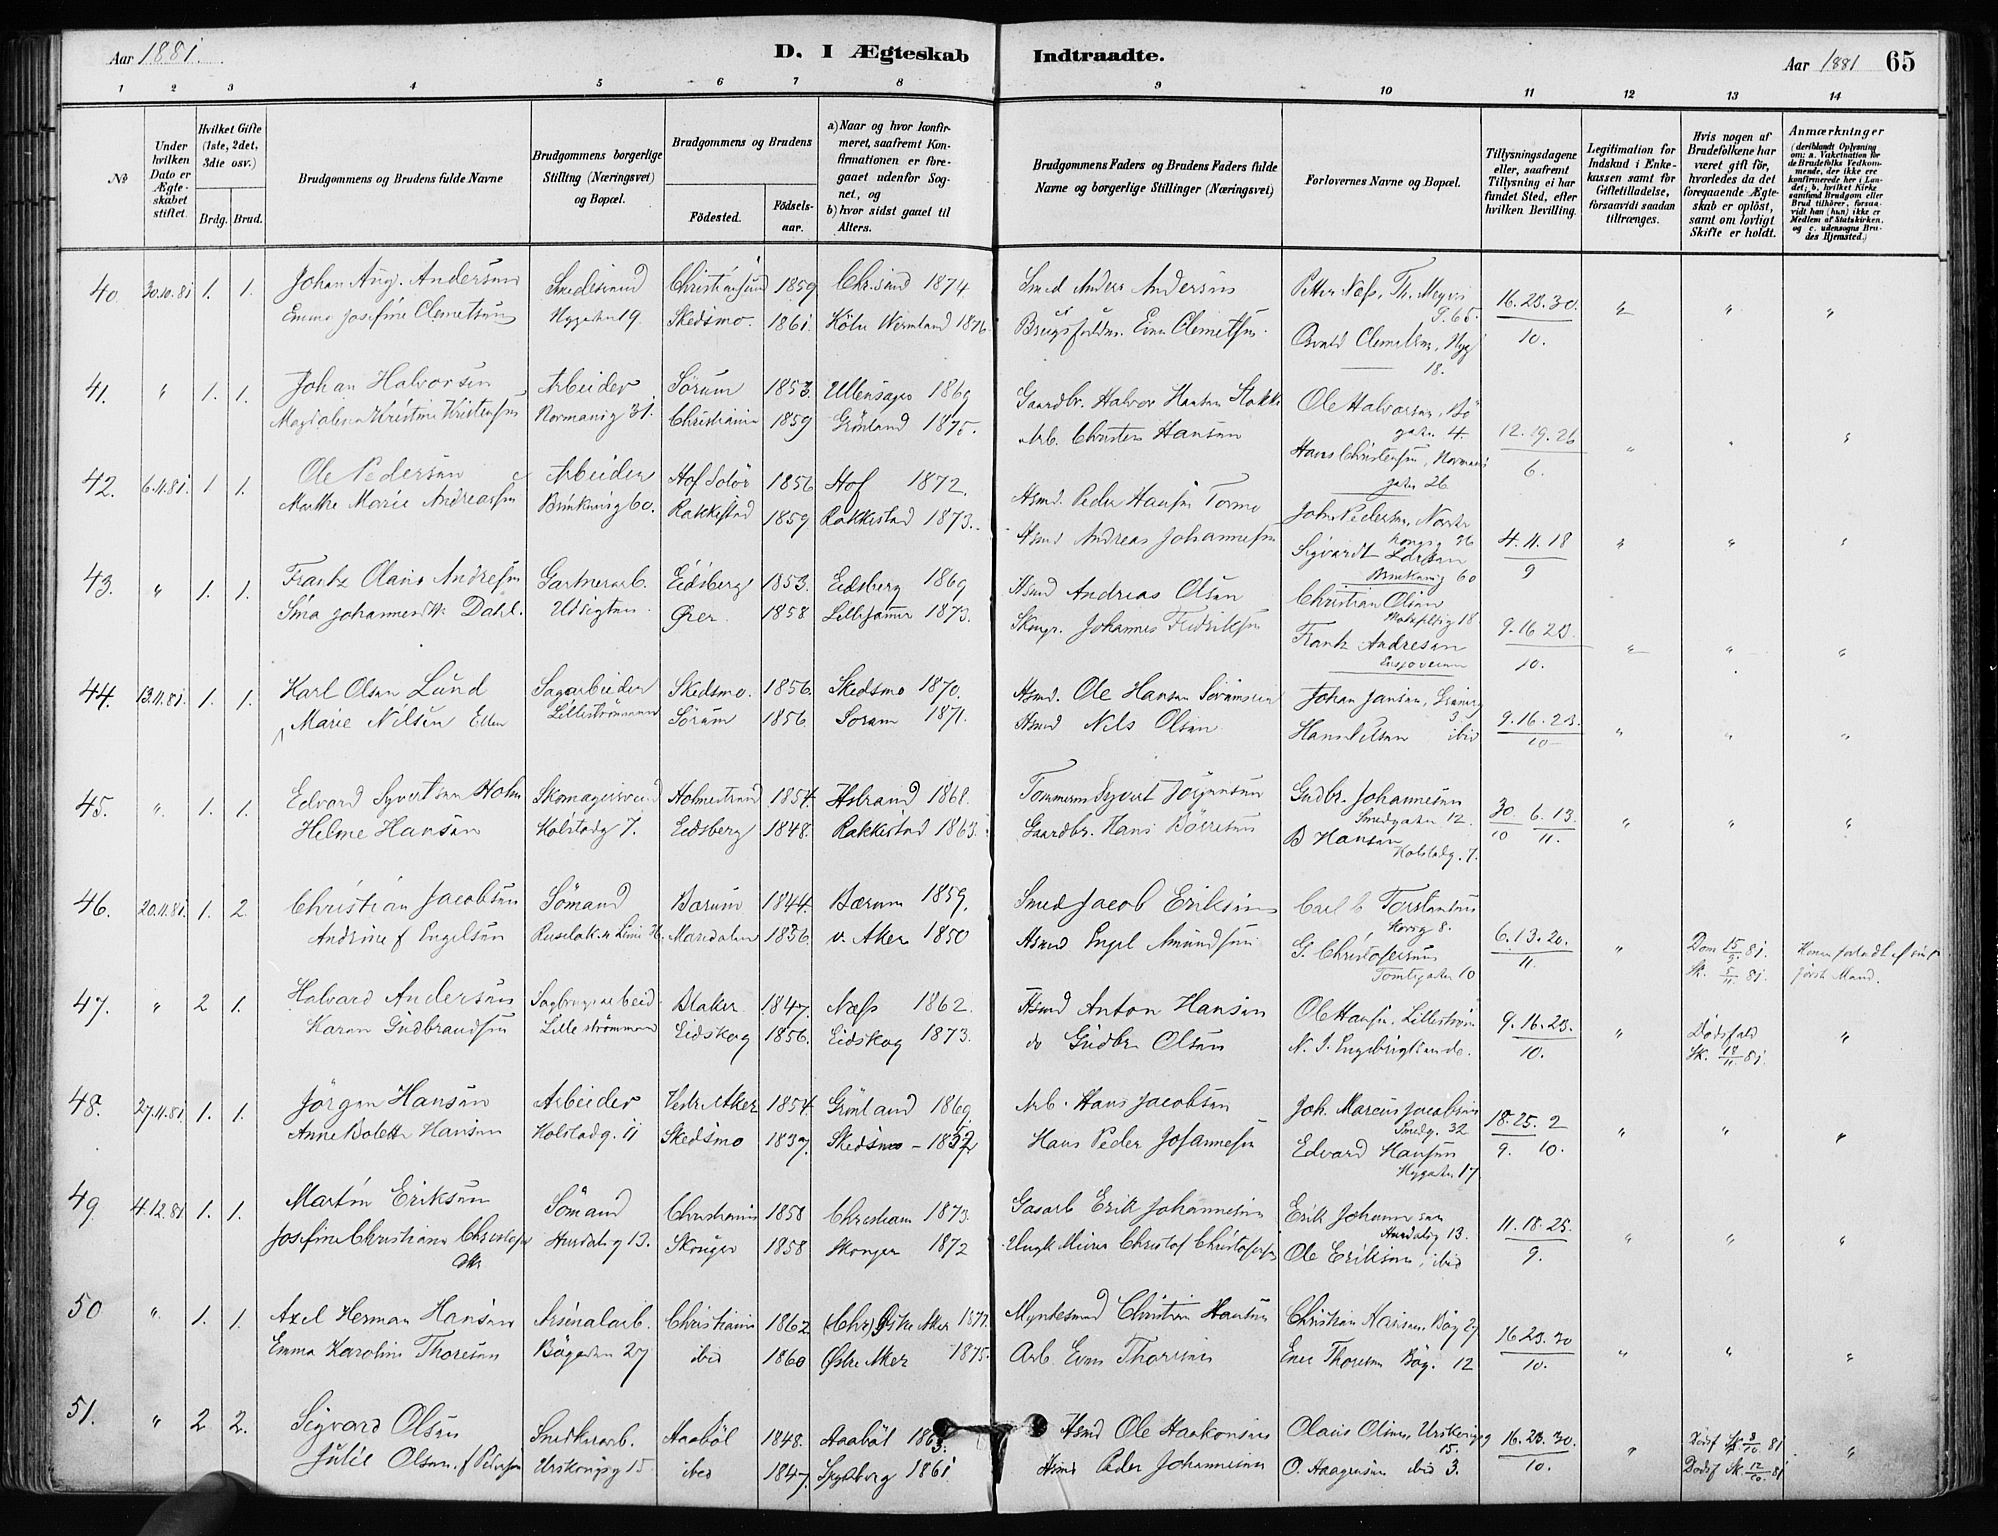 Aar 1881.
D. I Ægteskab Indtraadte.
Aar 1881 65
1 2 3 4 5 6 7 8 9 10 11 12 13 14
№
Under hvilken Dato er Ægteskabet stiftet.
Hvilket Gifte (1ste, 2det, 3die osv.)
Brdg. Brud.
Brudgommens og Brudens fulde Navne
Brudgommens borgerlige Stilling (Næringsvei) og Bopæl.
Brudgommens og Brudens
Födested.
Födselsaar.
a) Naar og hvor konfirmeret, saafremt Konfirmationen er foregaaet udenfor Sognet, og
b) hvor sidst gaaet til Alters.
Brudgommens Faders og Brudens Faders fulde Navne og borgerlige Stillinger (Næringsvei)
Forlovernes Navne og Bopæl.
Tillysningsdagene eller, saafremt Tillysning ei har fundet Sted, efter hvilken Bevilling.
Legitimation for Indskud i Enkekassen samt for Giftetilladelse, forsaavidt saadan tiltrænges.
Hvis nogen af Brudefolkene har været gift för, hvorledes da det foregaaende Ægteskab er oplöst, samt om lovligt Skifte er holdt.
Anmærkninger (deriblandt Oplysning om: a. Vakcination for de Brudefolks Vedkommende, der ikke ere konfirmerede her i Landet; b. hvilket Kirkesamfund Brudgom eller Brud tilhörer, forsaavidt han (hun) ikke er Medlem af Statskirken, og c. udensogns Brudes Hjemsted.)
40 30.10.81 1. 1. Johan Aug. Andersen Christiansund 1859 Chr.sund 1874 Smed Anders Andersen Petter Næss, Th. Meyers G. 65. 16.23.30.
Emma Josefine Clemetsen Nygaten 19. Skedsmo. 1861 Köln Wermland 1876 Clemetsen Osvald Clemetsen, Nyg 18. 10.
41. " 1. 1. Johan Halvorsen Arbeider Sørum 1853. Ullensager 1869 Gaardbr. Halvor Hansen Ole Halvorsen, Bögaten 4. 12.19.26
Magdalena Kristine Kristensen Normansg 31. Christiania 1859 Grönland 1875. Arb. Christen Hansen Hans Christensen, Normansgaten 26 6.
42. 6.11.81. 1. 1. Ole Pedersen Arbeider Hof Solör 1856 Hof 1872. Hsmd. Peder Hansen Tormo Johan Pedersen, 4.11.18
Marthe Marie Andreassen Brinkensg 60. Rakkestad 1859 Rakkestad 1873. Hsmd Andreas Johannesen Sigvardt Larsen Brinkensg 60 9
43. " 1. 1. Frantz Olaus Andresen Gartnerarb. Eidsberg 1853. Eidsberg 1869 Hsmd Andreas Olsen Christian Olsen 18 9.16.23.
Sina Johannesd. Dahl. Udsigten Øier. 1858 Lillehamer 1873. Johannes Fredriksen Frantz Andresen 10.
44. 13.11.81. 1. 1. Karl Olsen Lund Sagarbeider Skedsmo. 1856. Skedsmo 1870. Hsmd. Ole Hansen Johan Jansen, 3. 9.16.23.
Marie Nilsen Ellen Lilleströmmen Sörum 1856. Sorum 1871. Hsmd Nils Olsen Hans ibid 10
45. ". 1. 1. Edvard Syvertsen Holm Skomagersvend Holmestrand 1854. 1868. Tommerm Syvert Jörgensen Gudbr. Johannesen Smedgaten 12. 30 6.13.
Helme Hansen Kolstadg 7. Eidsberg 1848. Rakkestad 1863. Gaardbr. Hans B Hansen Kolstadg. 7. 10 11.
46. 20.11.81. 1. 2. Christian Jacobsen Sömand Bærum 1844. Bærum 1859. Smed Jacob Eriksen Carl Torstensen 8. 6.13.20.
Andrine f Engelsen Mandalen 1836. v. Aker 1850 Hsmd Engel Amundsen G. Christofersen Tomtegaten 10 11. " Dom 15/9 81. Sk. 5/11 81. første Mand.
47. " 2 1. Halvard Andersen Sagbrugsarbeid Blaker. 1847. Næss 1862. Hsmd Anton Hansen Ole Hansen, Lilleström 9.16.23.
Karen Gudbrandsen Lilleströmmen Eidskog 1856. Eidskog 1873. do Gudbr. Olsen N. J. Engebrigtsen do. 10. " Dödsfald Sk. 18/11 81. "
48. 27.11.81 1. 1. Jörgen Hansen Arbeider Vestre Aker 1854. Grönland 1869. Arb. Hans Jacobsen Joh. Marcus Jacobsen Smedg. 32 18.25. 2
Anne Bolette Hansen Kolstadg. 11 Skedsmo 1837. Skedsmo Hans Peder Johannesen Edvard Hansen Nygaten 17 9. 10.
49. 4.12.81 1. 1. Martin Eriksen Sömand Christiania 1858 Christiania 1873. Gasarb Erik Johannesen Erik Johannesen Hurdalsg 13. 11.18.25.
Josefine Christiane Christofersen Hurdalsg 13. Skouger 1858 Skouger 1872 Christof Christofersen Ole Eriksen, ibid 9.
50 " 1. 1. Axel Herman Hansen Arsenalarb. Christiania 1862 (Chr) Østre Aker 1877. Myntesmed Christian Hansen Christian Hansen, Bög 27 16.23.30
Emma Karoline Thoresen Bögaten 27 ibid 1860 Østre Aker 1875. Arb. Even Thoresen Thoresen Bög. 12 10.
51. " 2 2. Sigvard Olsen Snedkerarb. Aaböl 1848. Aaböl 1863. Hsmd Ole Haakonsen Olaus Olsen, Urskougsg 15. 16.23.30.
Julie Olsen f Pedersen Urskougsg 15 ibid 1847. 1861 Hsmd Peder Johannesen O. Haagensen ibid 3. 10. " Dödsf Sk. 3/10 81 Dödsf Sk. 12/10 81 "